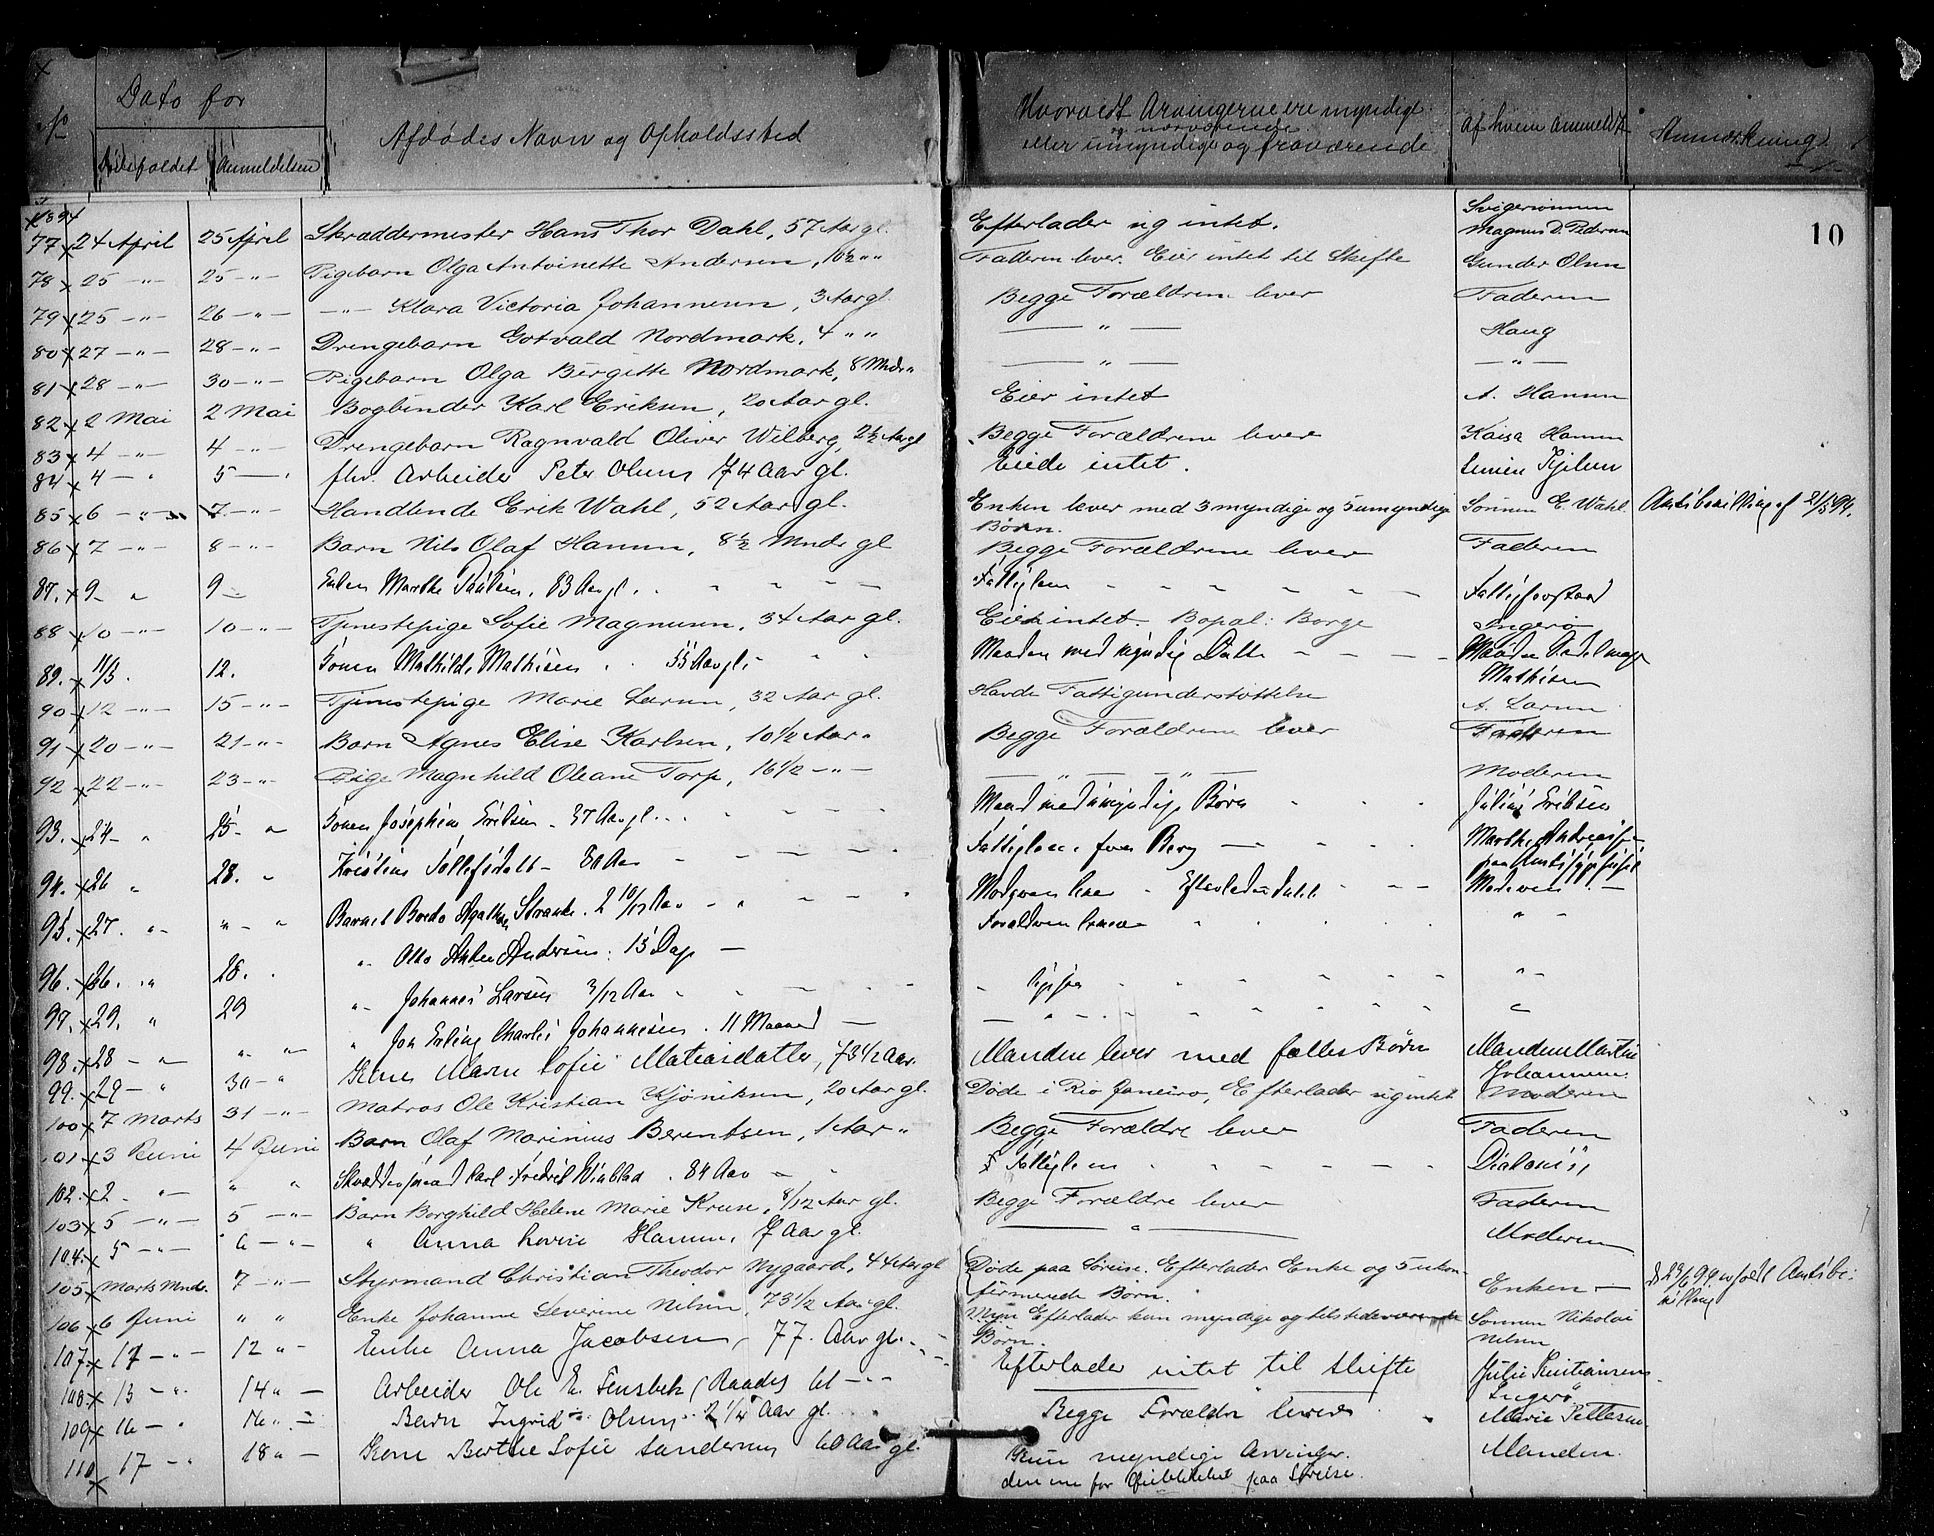 No Dato for Dødsfaldet Anmeldelsen Afdødes Navn og Opholdssted Hvorvidt Arvingerne ere myndige og nærværende eller umyndige og fraværende Af hvem anmeldt Anmærkning
10
1894
77 24 April 25 April Skræddermester Hans Thor Dahl, 57 Aar gl. Efterlader sig intet. Svigersønnen Magnus D. Pedersen
78 25 -"- 25 -"- Pigebarn Olga Antoinette Andersen, 10½ "" Faderen lever. Eier intet til Skifte Gunder Olsen
79 25 -"- 26 -"- -"- Klara Victoria Johannesen, 3 Aar gl. Begge Forældrene lever Faderen
80 27 -"- 28 -"- Drengebarn Gotvald Nordmark, 4 " " — " — Haug
81 28 -"- 30 -"- Pigebarn Olga Birgitte Nordmark, 8 Mndr " — " — — " —
82 2 Mai 2 Mai Bogbinder Karl Eriksen, 20 Aar gl. Eier intet A. Hansen
83 4 -"- 4 -"- Drengebarn Ragnvald Oliver Wilberg, 2½ Aar gl Begge Forældrene lever Kaisa Hansen
84 4 - " 5 — " fhv. Arbeider Peter Olsen 74 Aar gl. Eiede intet.
85 6 -"- 7 -"- Handlende Erik Wahl, 52 Aar gl. Enken lever med 3 myndige og 5 umyndige Børn. Sønnen E. Wahl. Amtsbevilling af 21/5 94.
86 7 -"- 8 -"- Barn Nils Olaf Hansen, 8½ Mndr gl Begge Forældrene lever Faderen
87. 9 - " 9 - Enken Marthe Paulsen, 83 Aar gl. Fattiglem Fattigforstand
88 10 -"- 10 -"- Tjenestepige Sofie Magnusen, 34 Aar gl. Eier intet. Bopæl: Borge Ingerø
89. 11/5. 12. Konen Mathilde Mathisen 55 Aar gl. Manden med myndig Datter Manden Mathisen
90 12 -"- 15 -"- Tjenestepige Marie Larsen, 32 Aar gl. Havde Fattigunderstøttelse A. Larsen
91 20 -"- 21 -"- Barn Agnes Elise Karlsen, 10 1/2 Aar " Begge Forældrene lever Faderen
92 22 -"- 23 -"- Pige Magnhild Oleane Torp, 16 1/2 -"- — " — " — Moderen
93. 24 - " 25 - " Konen Josephine Eriksen - 37 Aar gl. Mand med umyndige Børn Julius Eriksen
94. 26 " 28. " 80 Aar Fattiglem. fra Berg Marthe
95. 27. " " " Barnet Borda Agathe Strande. 2 10/12 Aar Moderen
96. 26. " 28. " Otto Anton Andersen: 15 Dage Forældrene leve " -
97. 29. " 29 " Johannes Larsen 3/12 Aar " -
98. 28 - " " " " Jon Erling Charles Johannesen. 11 Maaned — "
99. 29 - " 30 - " Kone Maren Sofie Matiasdatter, 73 1/2 Aar Manden lever med fælles Børn Manden Martin Johannesen.
100 7 Marts 31 -"- Matros Ole Kristian Kjøniksen, 20 Aar gl. Døde i Rio Janeiro, Efterlader sig intet Moderen
101 3 Juni 4 Juni Barn Olaf Marinius Berentsen, 1 Aar " Begge Forældre lever Faderen
102. 2. -"- " " Karl Fredrik 84 Aar Fattiglem
103 5 -"- 5 -"- Barn Borghild Helene Marie Kruse, 8/12 Aar gl. Begge Forældre lever Faderen
104. 5 -"- 6 -"- " Anna Lovise Hansen, 7 Aar gl. — " — Moderen
105 Marts Mnd. 7 -"- Styrmand Christian Theodor Nygaard, 44 Aar gl Døde paa Søreise. Efterlader Enke og 5 ukonfirmerede Børn. Enken -
106 6 Juni " " Enke Johanne Severine Nilsen, 73 1/2 Aar gl. Efterlader kun myndige og tilstedeværende Børn. Sønnen Nikolai Nilsen
107. 17 -"- 12 " - Enke Anna Jacobsen, 77. Aar gl. Efterlader intet til skifte Julie Kristiansen. Ingerø
108 13 -"- 14 " - Arbeider Ole E. (Raade) 61 -"-
109 16 - " 16 " - Barn Ingrid Olsen 2 1/4 Aar gl. Begge Forældre lever Marie Pettersen
110 17 - " 18 " - Kone Berthe Sofie Sandersen 60 Aar gl. Kun myndige Arvinger. paa Søreise. Manden.